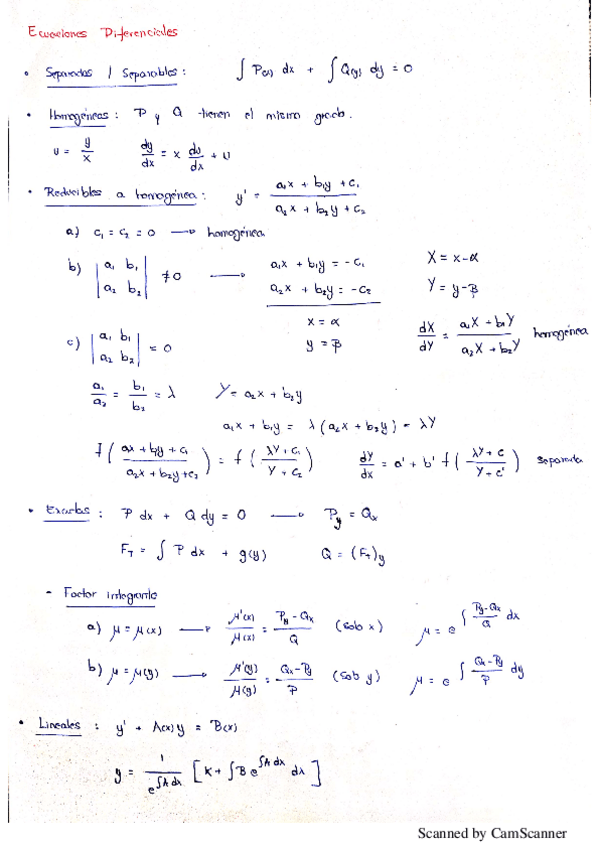 Ecuaciones Diferenciales
• Separadas / Separables : ∫ P(x) dx + ∫ Q(y) dy = 0
• Homogéneas : P y Q tienen el mismo grado.
u = y/x    dy/dx = x du/dx + u
• Reducibles a homogénea : y' = (a₁x + b₁y + c₁)/(a₂x + b₂y + c₂)
a) c₁ = c₂ = 0 → homogénea
b) |a₁ b₁; a₂ b₂| ≠ 0 → a₁x + b₁y = -c₁    X = x-α
a₂x + b₂y = -c₂    Y = y-β
x = α
y = β    dX/dY = (a₁X + b₁Y)/(a₂X + b₂Y) homogénea
c) |a₁ b₁; a₂ b₂| = 0
a₁/a₂ = b₁/b₂ = λ    Y = a₂x + b₂y
a₁x + b₁y = λ(a₂x + b₂y) = λY
f((ax + by + c₁)/(a₂x + b₂y + c₂)) = f((λY + c₁)/(Y + c₂))    dY/dx = a' + b' f((λY + c)/(Y + c')) separada
• Exactas : P dx + Q dy = 0 → Py = Qx
F_T = ∫ P dx + g(y)    Q = (F_T)y
- Factor integrante
a) μ = μ(x) → μ'(x)/μ(x) = (Py - Qx)/Q (sob x)    μ = e^∫ (Py-Qx)/Q dx
b) μ = μ(y) → μ'(y)/μ(y) = (Qx - Py)/P (sob y)    μ = e^∫ (Qx-Py)/P dy
• Lineales : y' + A(x)y = B(x)
y = 1/e^∫A dx [K + ∫B e^∫A dx dx]
Scanned by CamScanner